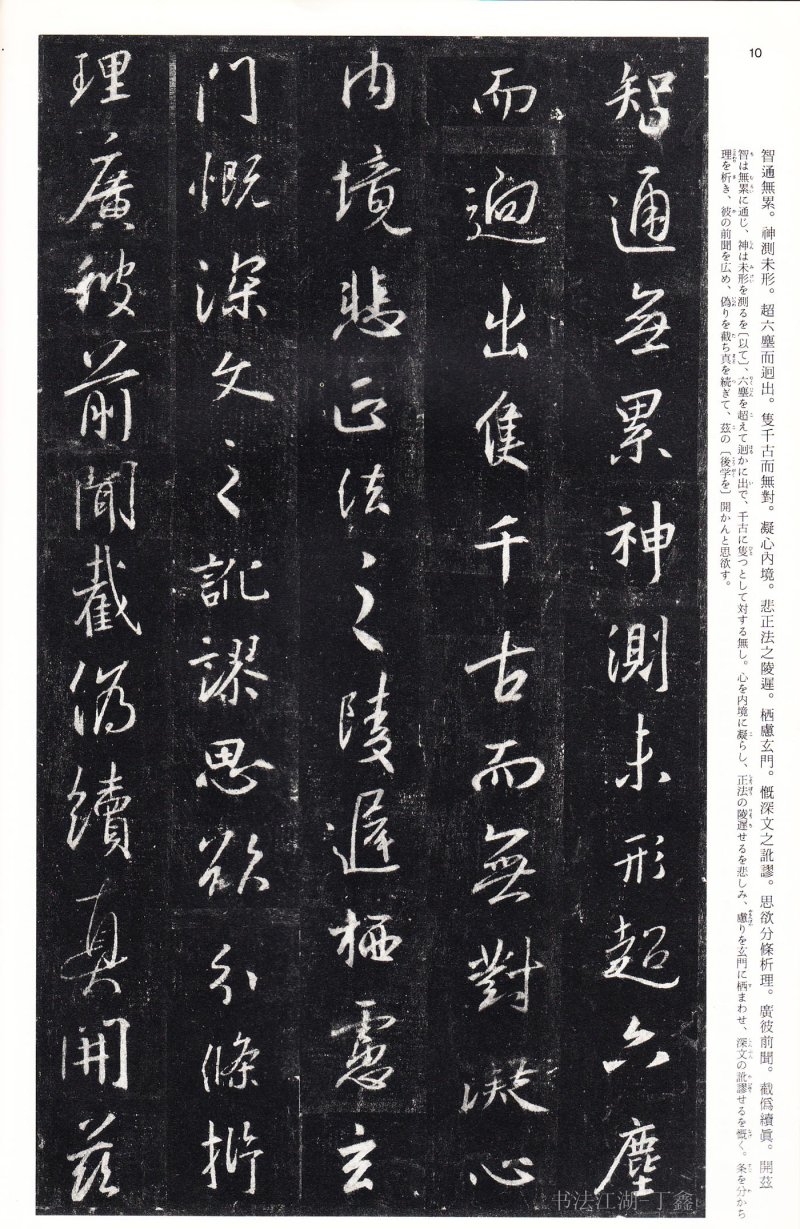 10
智通無累。神測未形。超六塵而迥出。隻千古而無對。凝心內境。悲正法之陵遲。栖慮玄門。慨深文之訛謬。思欲分條析理。廣彼前聞。截僞續眞。開茲
智は無累に通じ、神は未形を測るを〔以て〕、六塵を超えて迥かに出で、千古に隻つとして対する無し。心を内境に凝らし、正法の陵遅せるを悲しみ、慮りを玄門に栖まわせ、深文の訛謬せるを慨く。条を分かち
理を析き、彼の前聞を広め、偽りを截ち真を続ぎて、茲の〔後学を〕開かんと思欲す。
智通無累神測未形超六塵
而迥出隻千古而無對凝心
内境悲正法之陵遲栖慮玄
門慨深文之訛謬思欲分條析
理廣彼前聞截偽續真開茲
书法江湖-丁鑫